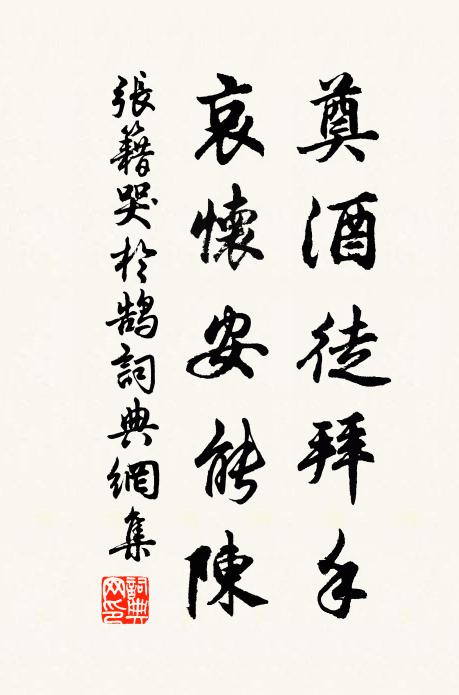 奠酒徒拜手
哀懷安能陳
張籍哭於鵠詞典網集
詞典网印